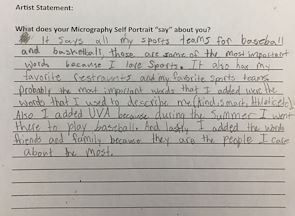 Artist Statement:
What does your Micrography Self Portrait "say" about you?
It says all my sports teams for baseball
and basketball, those are some of the most important
words because I love sports. It also has my
favorite restraunts and my favorite sports teams
probably the most important words that I added were the
words that I used to describe me (kind, smart, Athletic etc)
Also I added UVA because during the summer I went
there to play baseball. And lastly I added the words
friends and family because they are the people I care
about the most.